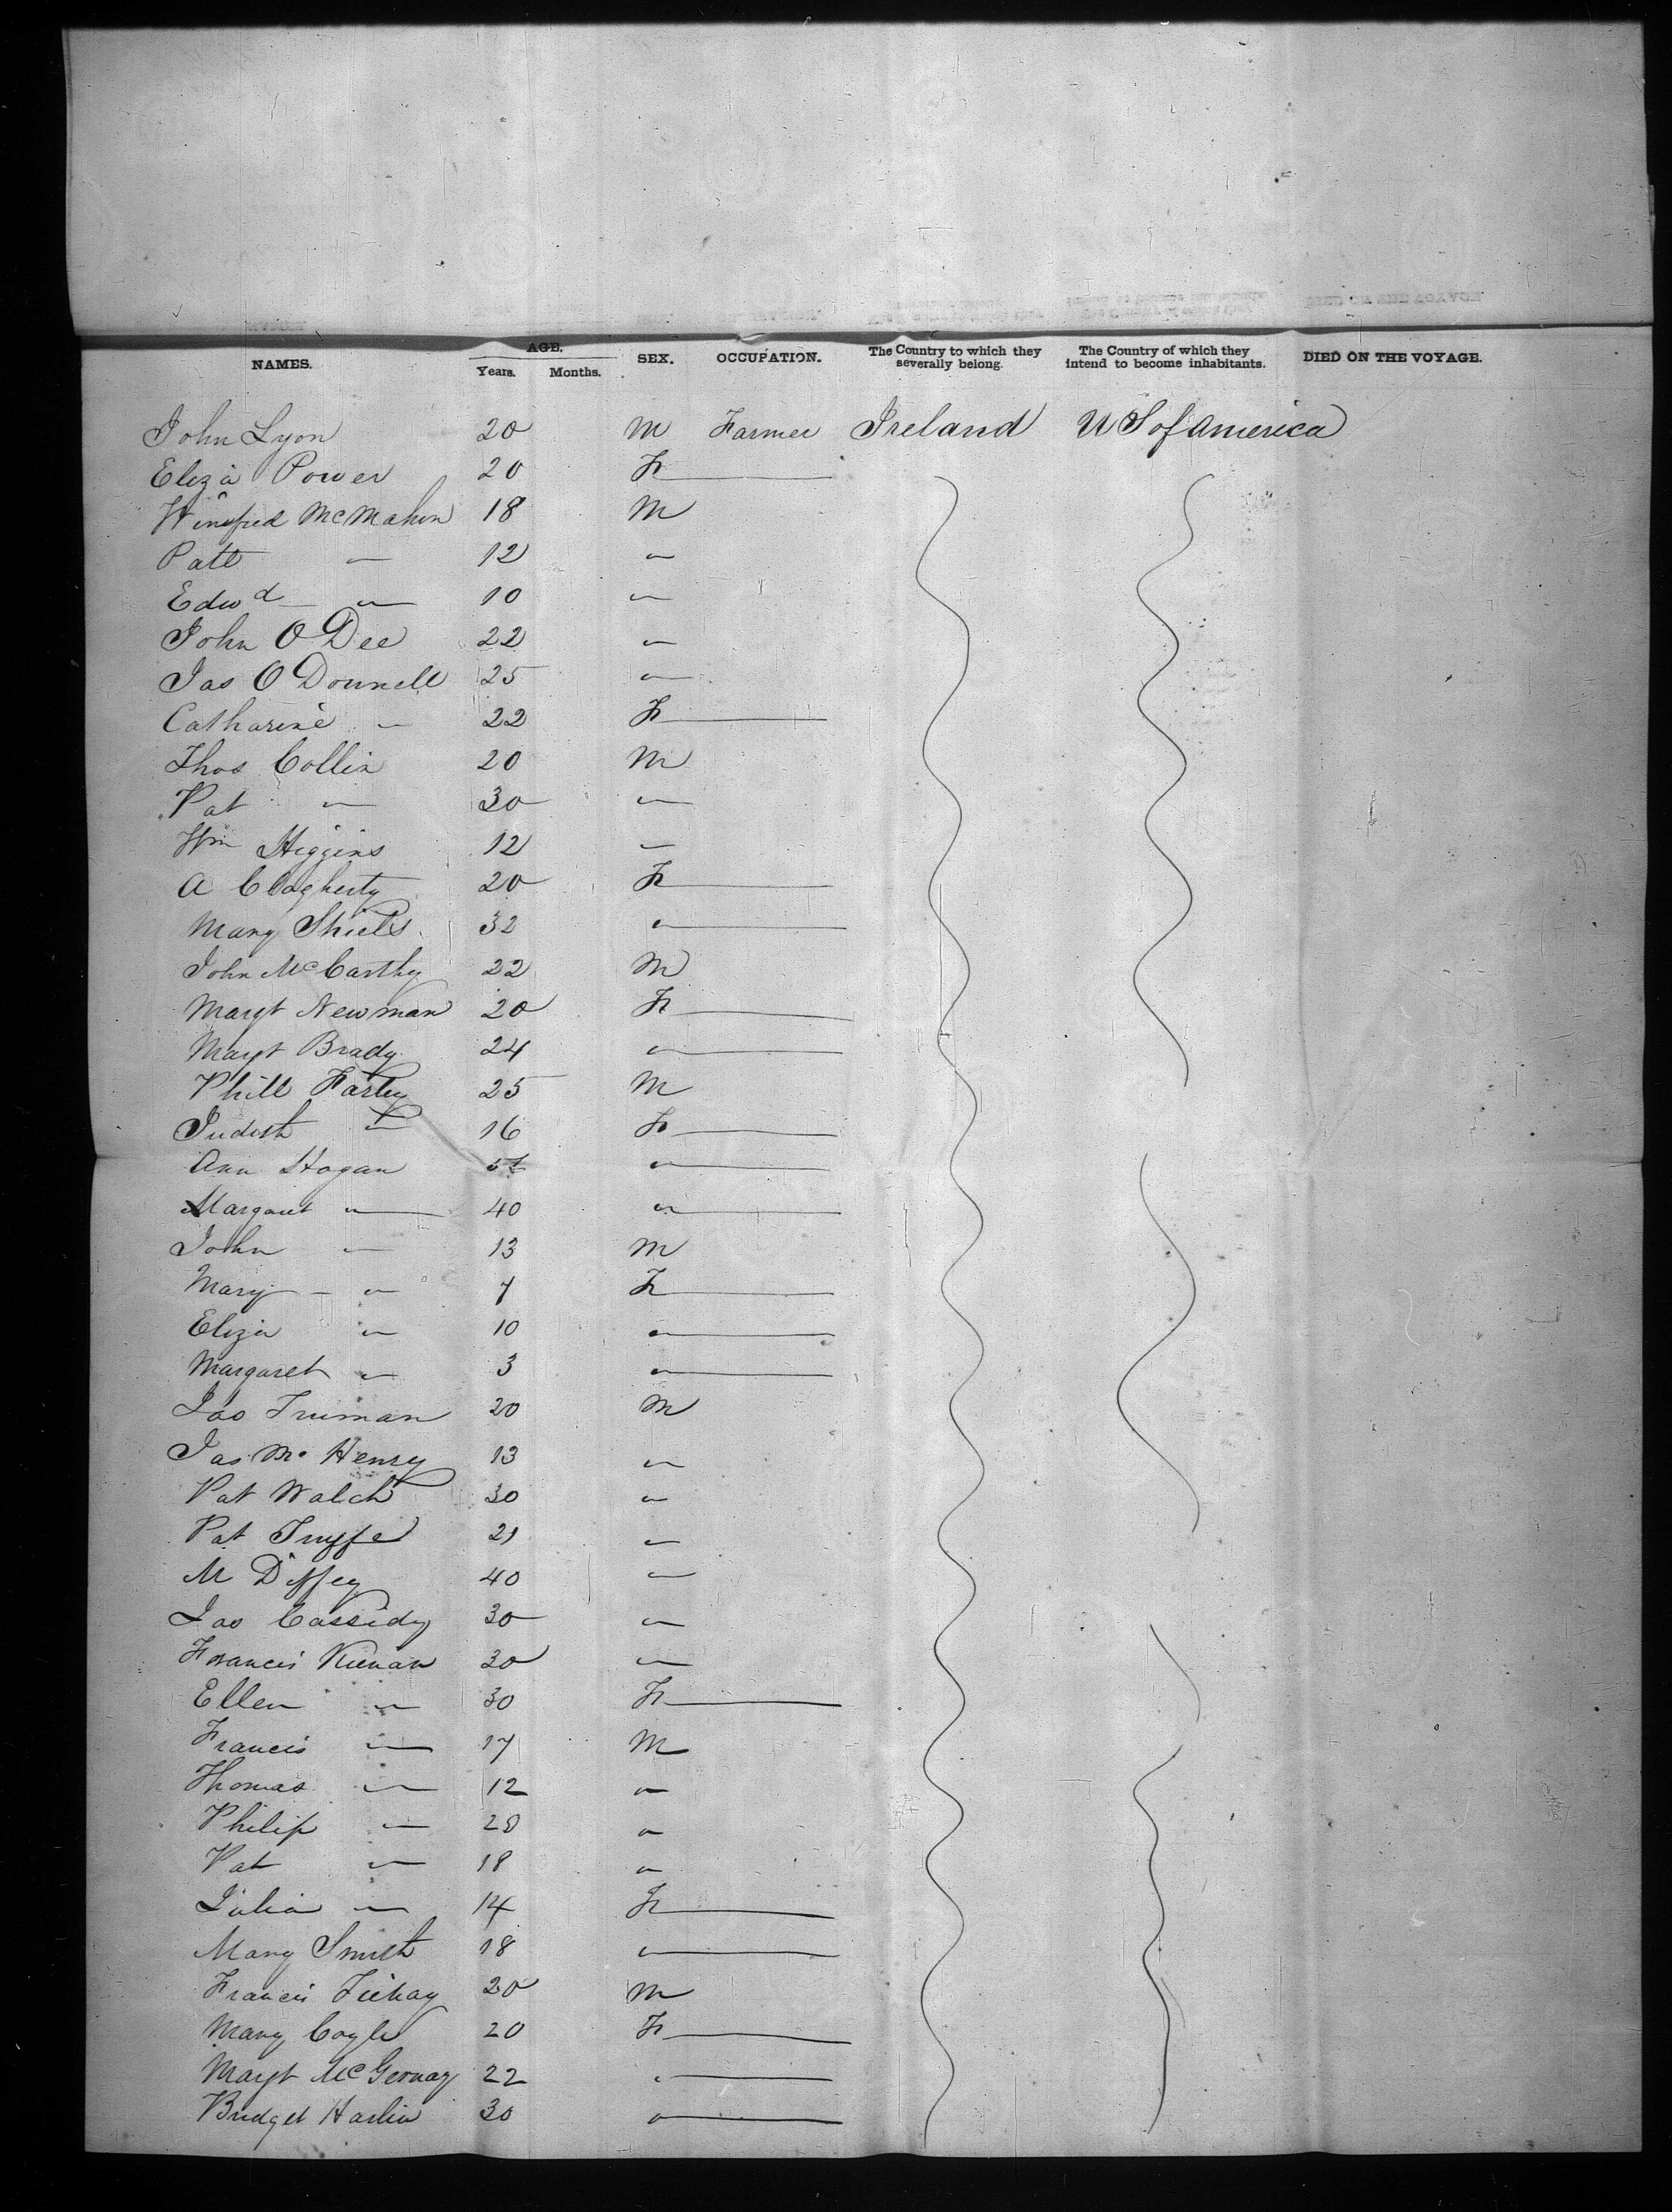 NAMES. AGE. Years. Months. SEX. OCCUPATION. The Country to which they severally belong. The Country of which they intend to become inhabitants. DIED ON THE VOYAGE.
John Lyon 20 M Farmer Ireland U S of America
Eliza Power 20 F
Winifred McMahon 18 M
Patt " 12 "
Edwd " 10 "
John O Dee 22 "
Jas O Donnell 25 "
Catharine " 22 F
Thos Collin 20 M
Pat " 30 "
Wm Higgins 12 "
A Clogherty 20 F
Mary Shiels 32 "
John McCarthy 22 M
Margt Newman 20 F
Margt Brady 24 "
Phill Farley 25 M
Judith " 16 F
Ann Hogan "
Margaret " 40 "
John " 13 M
Mary " 7 F
Eliza " 10 "
Margaret " 3 "
Jas Truman 20 M
Jas Mc Henry 13 "
Pat Walch 30 "
Pat 21 "
M Diffey 40 "
Jas Cassidy 30 "
Francis Kiernan 30 "
Ellen " 30 F
Francis " 17 M
Thomas " 12 "
Philip " 28 "
Pat " 18 "
Julia " 14 F
Mary Smith 18 "
Francis 20 M
Mary Coyle 20 F
Margt 22 "
Bridget Harlin 30 "